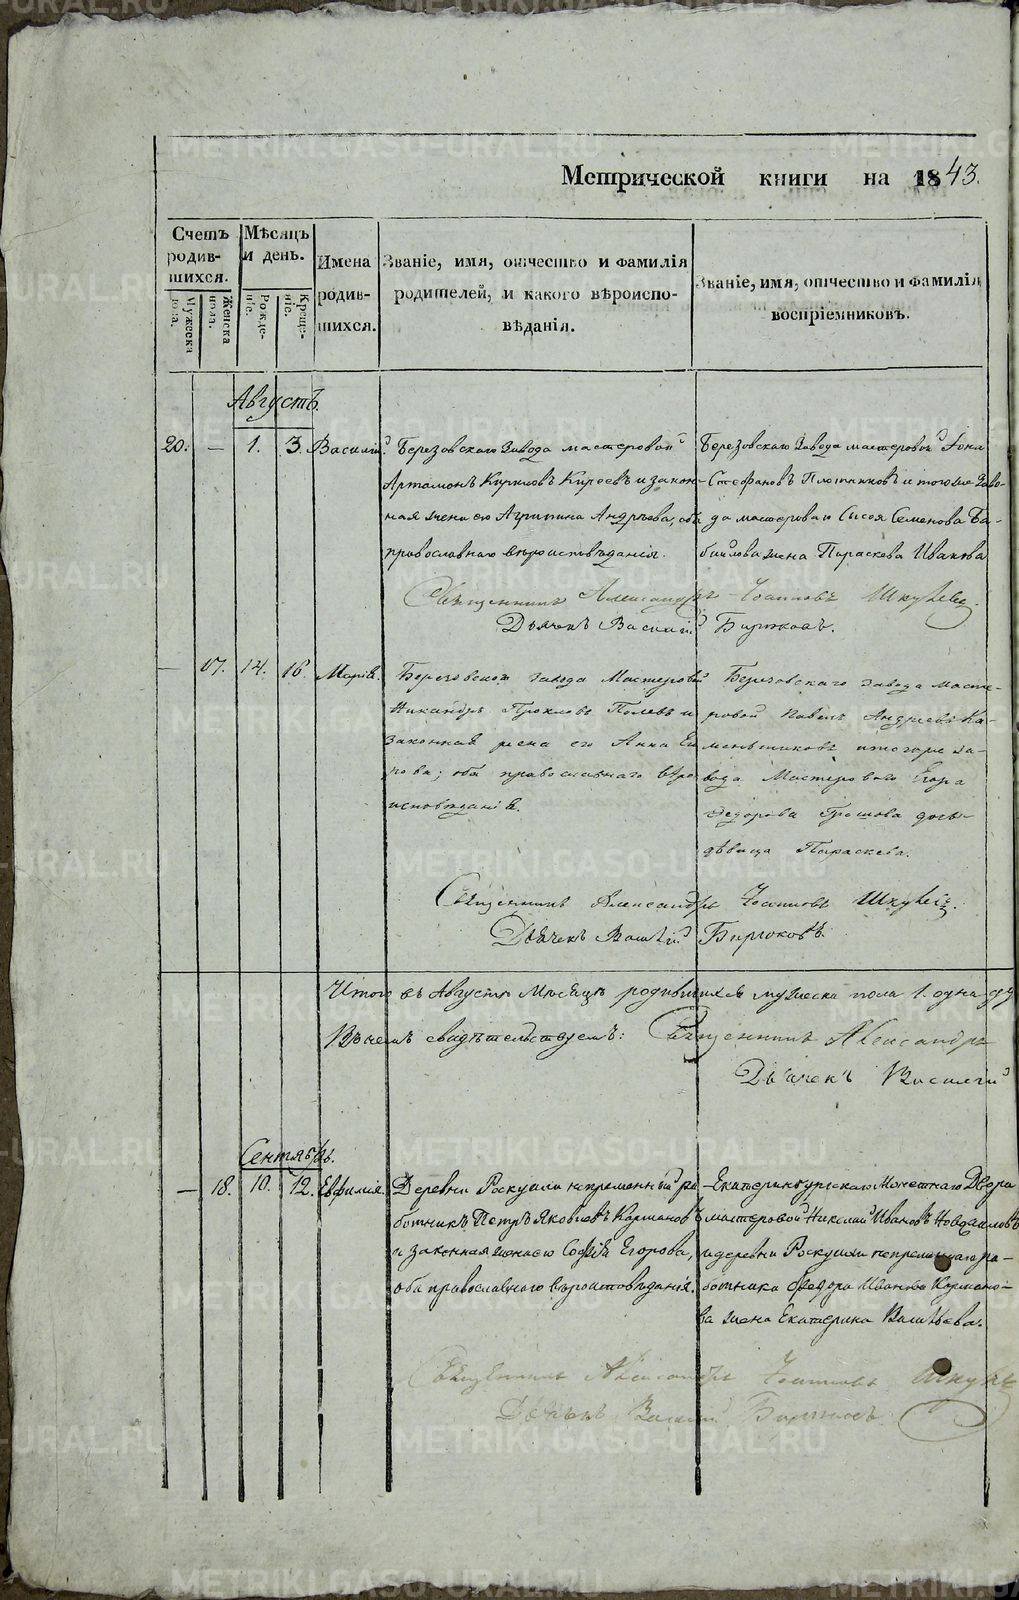 Метрической книги на 1843.
Счетъ родив-шихся.
Мужеска пола.
Женска пола.
Мѣсяцъ и день.
Рожде-нiе.
Креще-нiе.
Имена
родив-
шихся.
Званіе, имя, отчество и фамилія
родителей, и какого вѣроиспо-
вѣданія.
Званіе, имя, отчество и фамилія
воспріемниковъ.
Августъ.
20. — 1. 3. Василій.
Березовскаго завода мастеровой
Артамонъ Кириловъ Киреевъ и закон-
ная жена его Агрипина Андрѣева, оба
православнаго вѣроисповѣданія.
Березовскаго завода мастеровой Iона
Стефановъ Плотниковъ и тогоже заво-
да мастероваго Сысоя Семенова Ба-
бина жена Параскева Иванова
Священникъ Александръ Іоанновъ
Дьячекъ Василій Бирюковъ.
— 17. 14. 16. Марія.
Березовскаго завода Мастеровой
Никандръ Прокловъ Полевъ и
законная жена его Анна Ег
рова; оба православнаго вѣро
исповѣданія.
Березовскаго завода масте-
ровой Павелъ Андреевъ Ка-
меньщиковъ и тогоже за-
вода Мастероваго Егора
Федорова дочь
дѣвица Параскева.
Священникъ Александръ Іоанновъ
Дьячекъ Василій Бирюковъ.
Итого въ Августѣ Мѣсяцѣ родившихся мужеска пола 1. одна
Въ чемъ свидѣтельствуемъ: Священникъ Александръ
Дьячекъ Василій
Сентябрь.
— 18. 10. 12. Евфимія.
Деревни непременный ра
ботникъ Петръ Яковлевъ Кармановъ
и законная жена его Софія Егорова,
оба православнаго вѣроисповѣданія.
Екатеринбургскаго Монетнаго Двора
мастеровой Николай Ивановъ
и деревни непременнаго ра-
ботника Федора Иванова Кармано-
ва жена Екатерина Васильева.
Священникъ Александръ Іоанновъ
Дьячекъ Василій Бирюковъ
METRIKI.GASO-URAL.RU